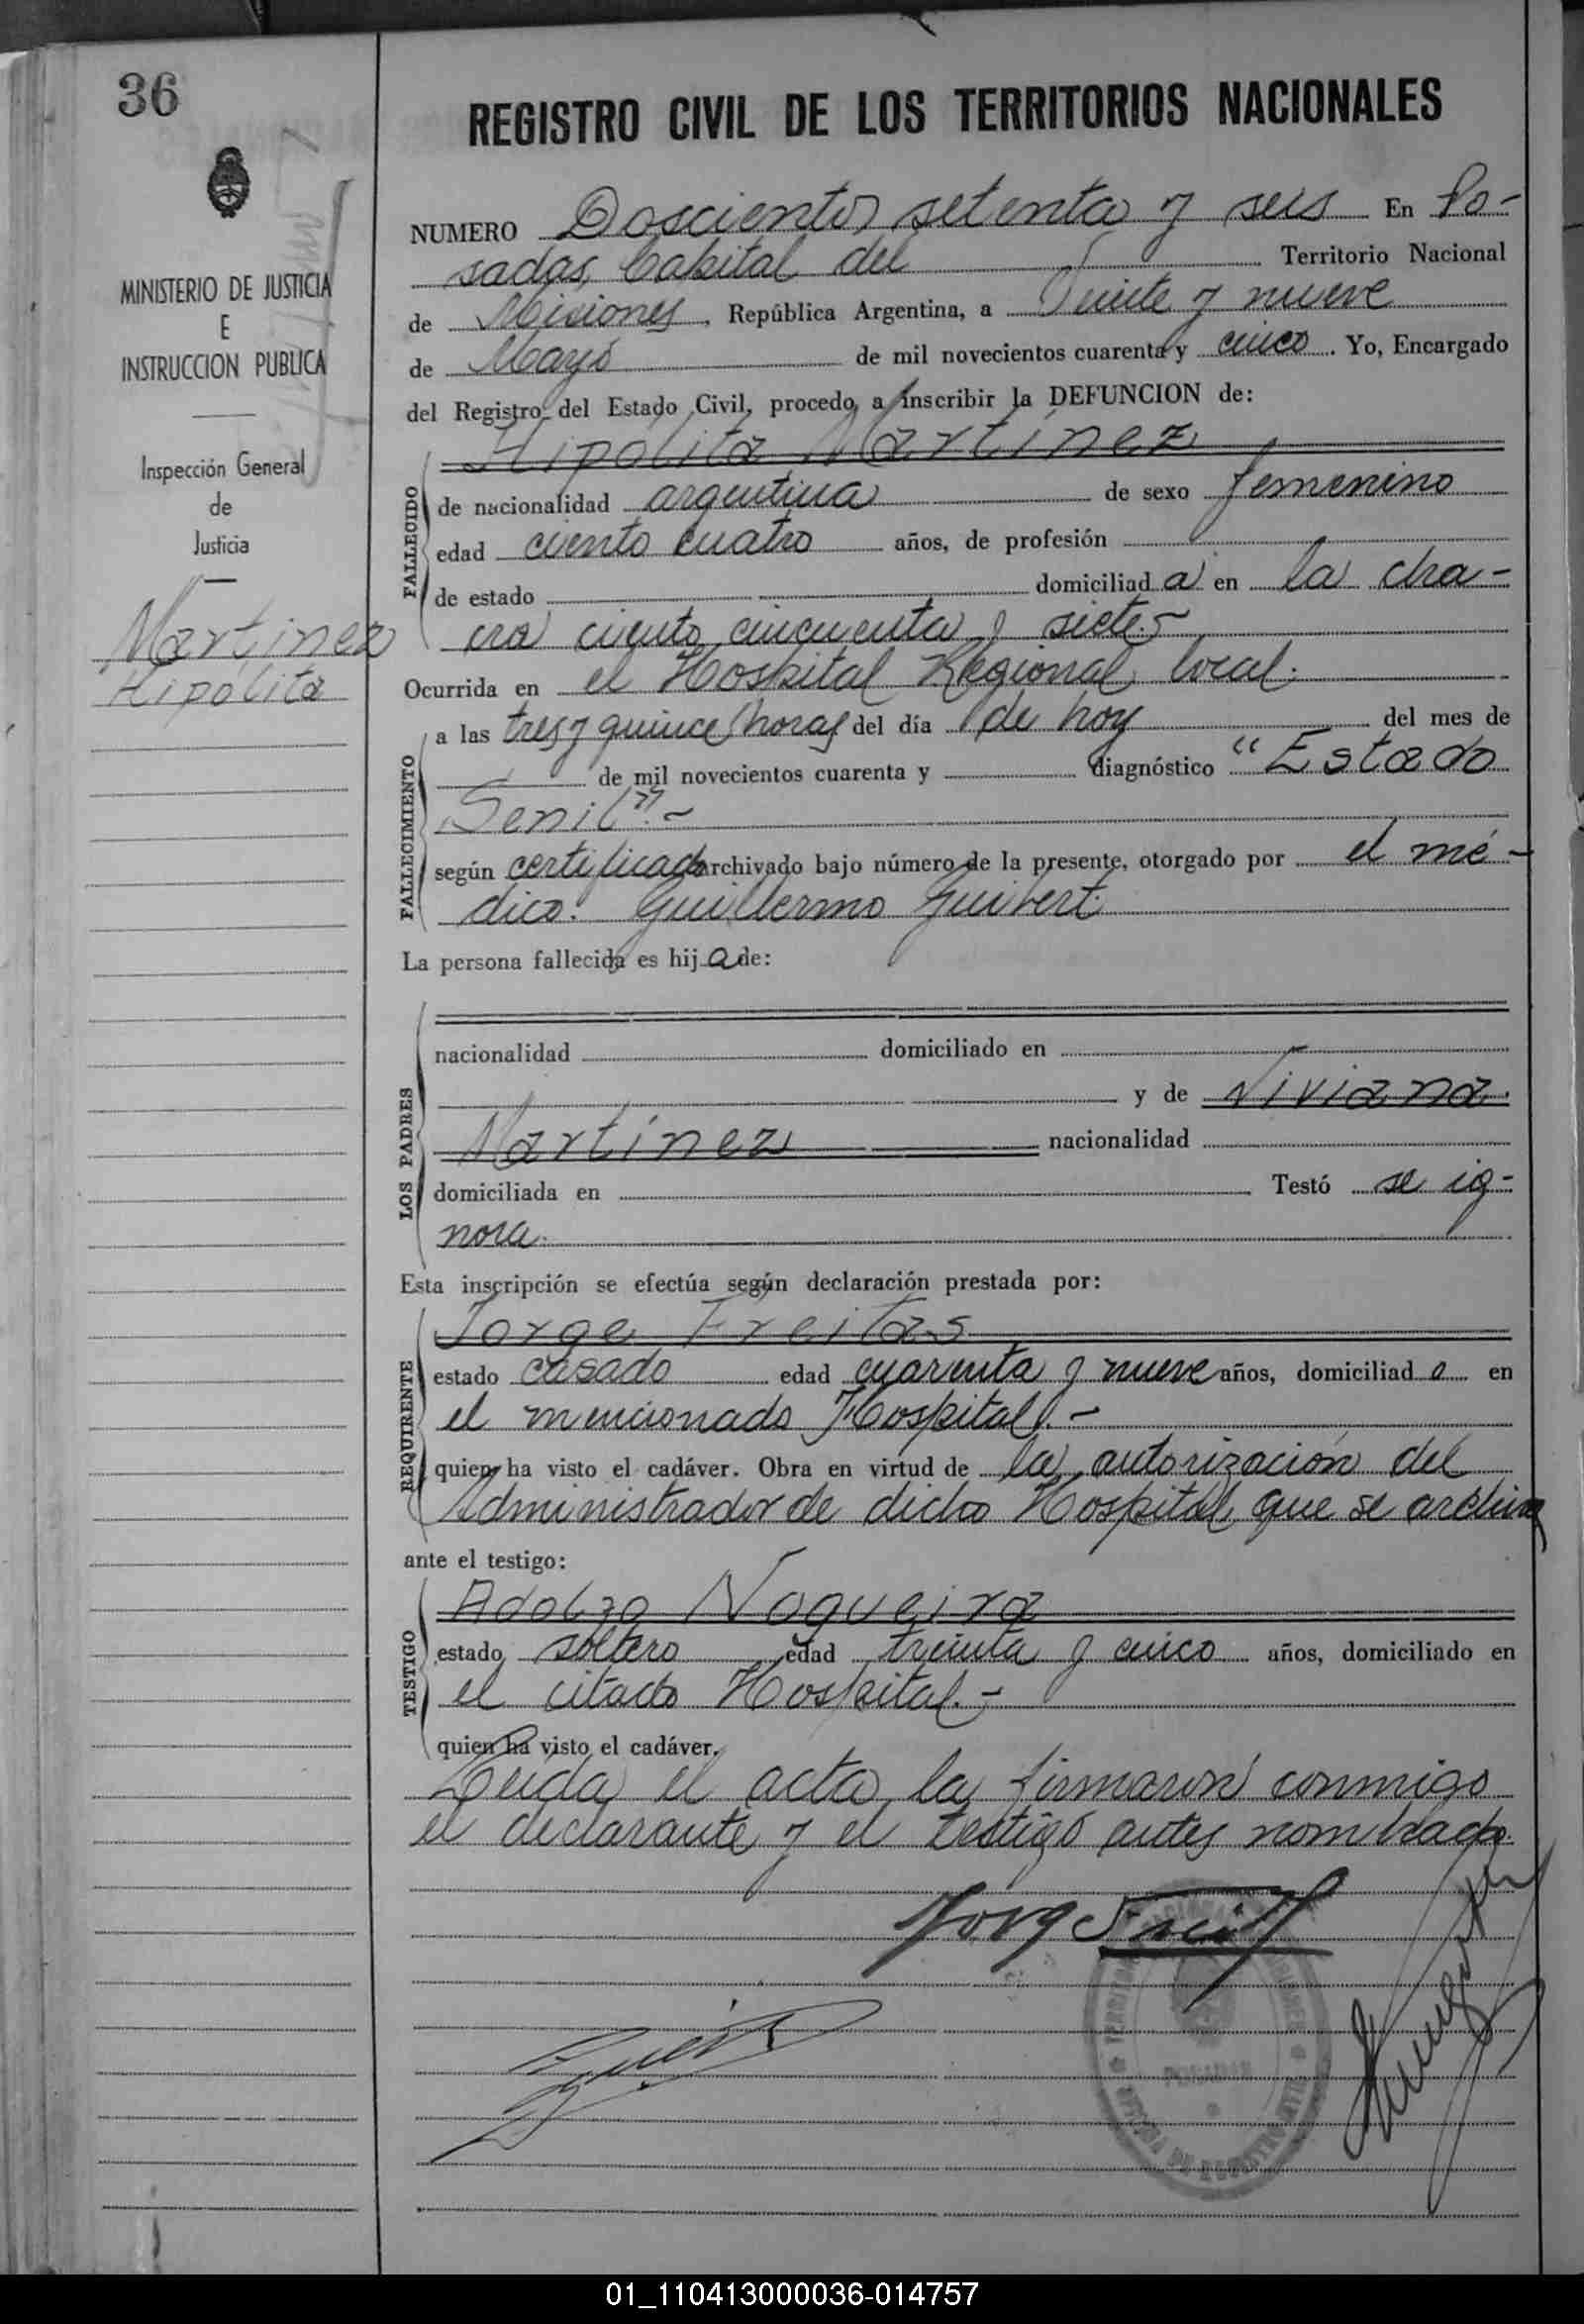 36
MINISTERIO DE JUSTICIA
E
INSTRUCCION PUBLICA
Inspección General
de
Justicia
Martinez
Hipólita
REGISTRO CIVIL DE LOS TERRITORIOS NACIONALES
NUMERO Doscientos setenta y seis En Po-
sadas, Capital del Territorio Nacional
de Misiones, República Argentina, a Veinte y nueve
de Mayo de mil novecientos cuarenta y cinco. Yo, Encargado
del Registro del Estado Civil, procedo a inscribir la DEFUNCION de:
Hipólita Martínez
FALLECIDO
de nacionalidad argentina de sexo femenino
edad ciento cuatro años, de profesión
de estado domiciliad a en la cha-
cra ciento cincuenta y siete.-
Ocurrida en el Hospital Regional local.
FALLECIMIENTO
a las tres y quince horas del día de hoy del mes de
de mil novecientos cuarenta y diagnóstico "Estado
Senil".-
según certificado archivado bajo número de la presente, otorgado por el mé-
dico. Guillermo Guibert.
La persona fallecida es hij a de:
LOS PADRES
nacionalidad domiciliado en
y de Viviana
Martínez nacionalidad
domiciliada en Testó se ig-
nora.
Esta inscripción se efectúa según declaración prestada por:
REQUIRENTE
Jorge Freitas
estado casado edad cuarenta y nueve años, domiciliad o en
el mencionado Hospital.-
quien ha visto el cadáver. Obra en virtud de la autorización del
Administrador de dicho Hospital, que se archiva
ante el testigo:
TESTIGO
Adolfo Nogueira
estado soltero edad treinta y cinco años, domiciliado en
el citado Hospital.-
quien ha visto el cadáver.
Leida el acta, la firmaron conmigo
el declarante y el testigo antes nombrado.
01_110413000036-014757